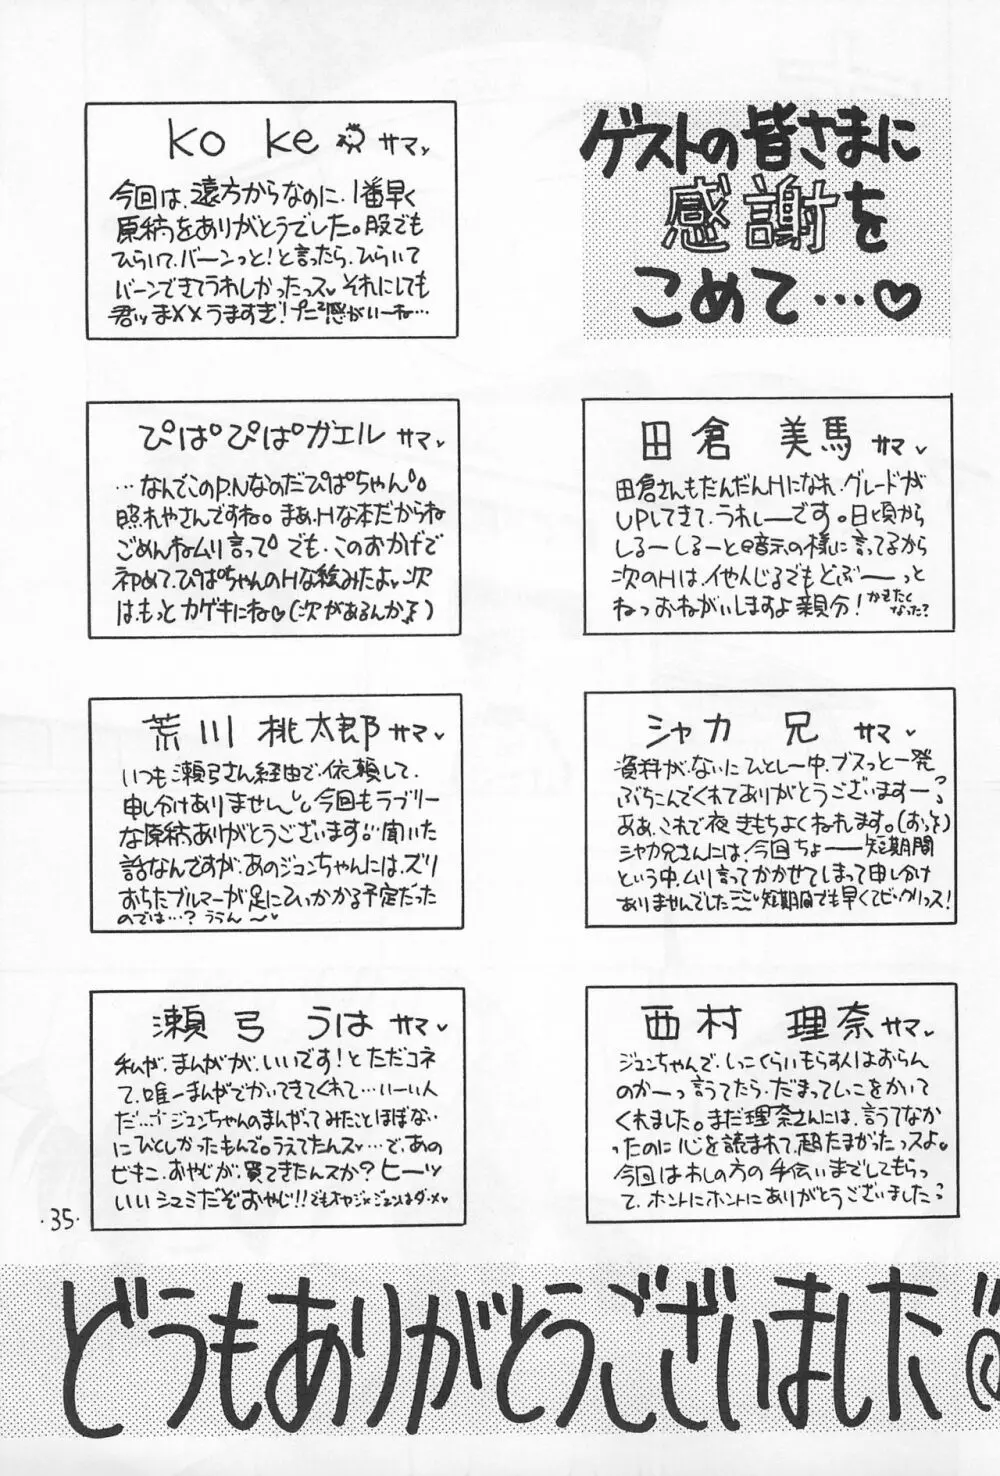 ゲストの皆さまに
感謝を
こめて…♡
ko ke サマ
今回は、遠方からなのに、1番早く
原稿をありがとうでした。服でも
ひらいて、バーンっと!と言ったら、ひらいて
バーンできてうれしかったっス。それにしても
うますぎ!プニプニ感がいーね…
田倉 美馬 サマ
田倉さんもだんだんHになれ、グレードが
UPしてきて、うれしーです。日頃から
しるーしるーと暗示の様に言ってるから
次のHは、
ねっおねがいしますよ親分!かきたく
なった?
ぴぱぴぱガエル サマ
…なんでこのP.Nなのだぴぱちゃん
照れやさんですね。まあ、Hな本だからね
ごめんねムリ言って でも、このおかげで
初めて、ぴぱちゃんのHな絵みたよ 次
は、もっとカゲキにね♡(次があるんか)
シャカ 兄 サマ
資料がないにひとしー中、ブスっと一発
ぶちこんでくれてありがとうございますーっ
ああ、これで夜きもちよくねれます。(おっと)
シャカ兄さんには、今回ちょーー短期間
という中、ムリ言ってかかせてしまって申し分け
ありませんでした 短期間でも早くてビックリっス!
荒川 桃太郎 サマ
いつも瀬弓さん経由で、依頼して、
申し分けありません 今回もラブリー
な原稿ありがとうございます 聞いた
話なんですが、あのジュンちゃんには、ズリ
おちたブルマーが足にひっかかる予定だった
のでは…?ううん〜
西村 理奈 サマ
ジュンちゃんで、しっこくらいもらす人はおらん
のかーっ言うてたら、だまってしっこをかいて
くれました。まだ理奈さんには、言うてなか
ったのに心を読まれて、超たまがったっスよ。
今回はわしの方の手伝いまでしてもらっ
て、ホントにホントにありがとうございました
瀬弓 うは サマ
私が、まんがが、いいです!とただコネ
て、唯一まんがでかいてきてくれて…いーい人
だ… ジュンちゃんのまんがってみたことほぼない
にひとしかったもんで。うえてたんスッ…で、あの
ビキニ、おやじが、買ってきたんスか?ヒーッ
いいシュミだぞおやじ!!でもオヤジ×ジュンはダ・メ
・35・
どうもありがとうございました